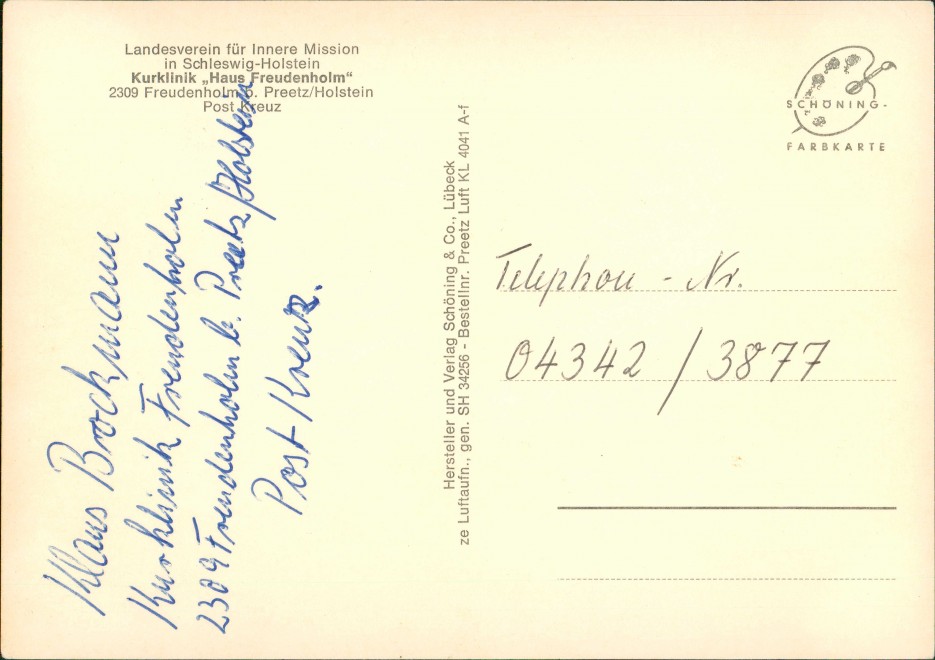 Landesverein für Innere Mission
in Schleswig-Holstein
Kurklinik „Haus Freudenholm“
2309 Freudenholm b. Preetz/Holstein
Post Kreuz
Klaus Brockmann
Kurklinik Freudenholm
2309 Freudenholm b. Preetz/Holstein
Post Kreuz.
Hersteller und Verlag Schöning & Co., Lübeck
ze Luftaufn., gen. SH 34256 - Bestellnr. Preetz Luft KL 4041 A-f
SCHÖNING-
FARBKARTE
Telephon - Nr.
04342 / 3877